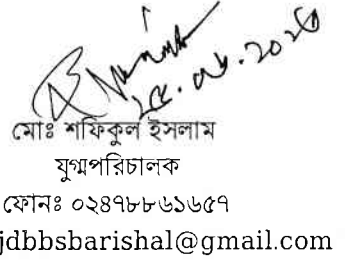 মোঃ শফিকুল ইসলাম
যুগ্মপরিচালক
ফোনঃ ০২৪৭৮৮৬১৬৫৭
jdbbsbarishal@gmail.com